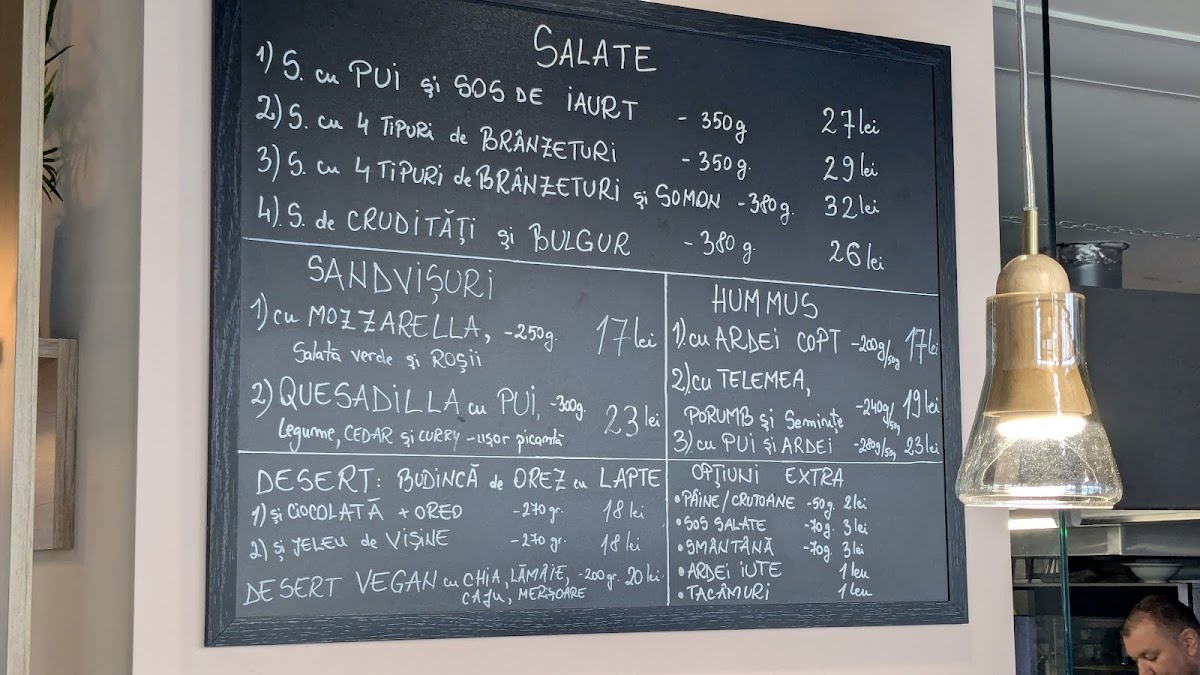 SALATE
1) S. cu PUI și SOS DE IAURT - 350g 27 lei
2) S. cu 4 TIPURI de BRÂNZETURI - 350g. 29 lei
3) S. cu 4 TIPURI de BRÂNZETURI și SOMON - 380g. 32 lei
4). S. de CRUDITĂȚI și BULGUR - 380 g. 26 lei
SANDVIȘURI
1) cu MOZZARELLA, - 250g. 17 lei
Salată verde și ROȘII
2) QUESADILLA cu PUI, - 300g. 23 lei
legume, CEDAR și CURRY - ușor picantă
HUMMUS
1) cu ARDEI COPT - 200g/50g 17 lei
2). cu TELEMEA,
PORUMB și Semințe - 240g/50g 19 lei
3) cu PUI și ARDEI - 280g/50g 23 lei
DESERT: BUDINCĂ de OREZ cu LAPTE
1) și CIOCOLATĂ + OREO - 270gr. 18 lei
2) și JELEU de VIȘINE - 270 gr. 18 lei
DESERT VEGAN cu CHIA, LĂMÂIE, - 200 gr. 20 lei
CAJU, MERIȘOARE
OPȚIUNI EXTRA
• PÂINE/CRUTOANE - 50g. 2 lei
• SOS SALATE - 70g. 3 lei
• SMÂNTÂNĂ - 70g. 3 lei
• ARDEI IUTE 1 leu
• TACÂMURI 1 leu